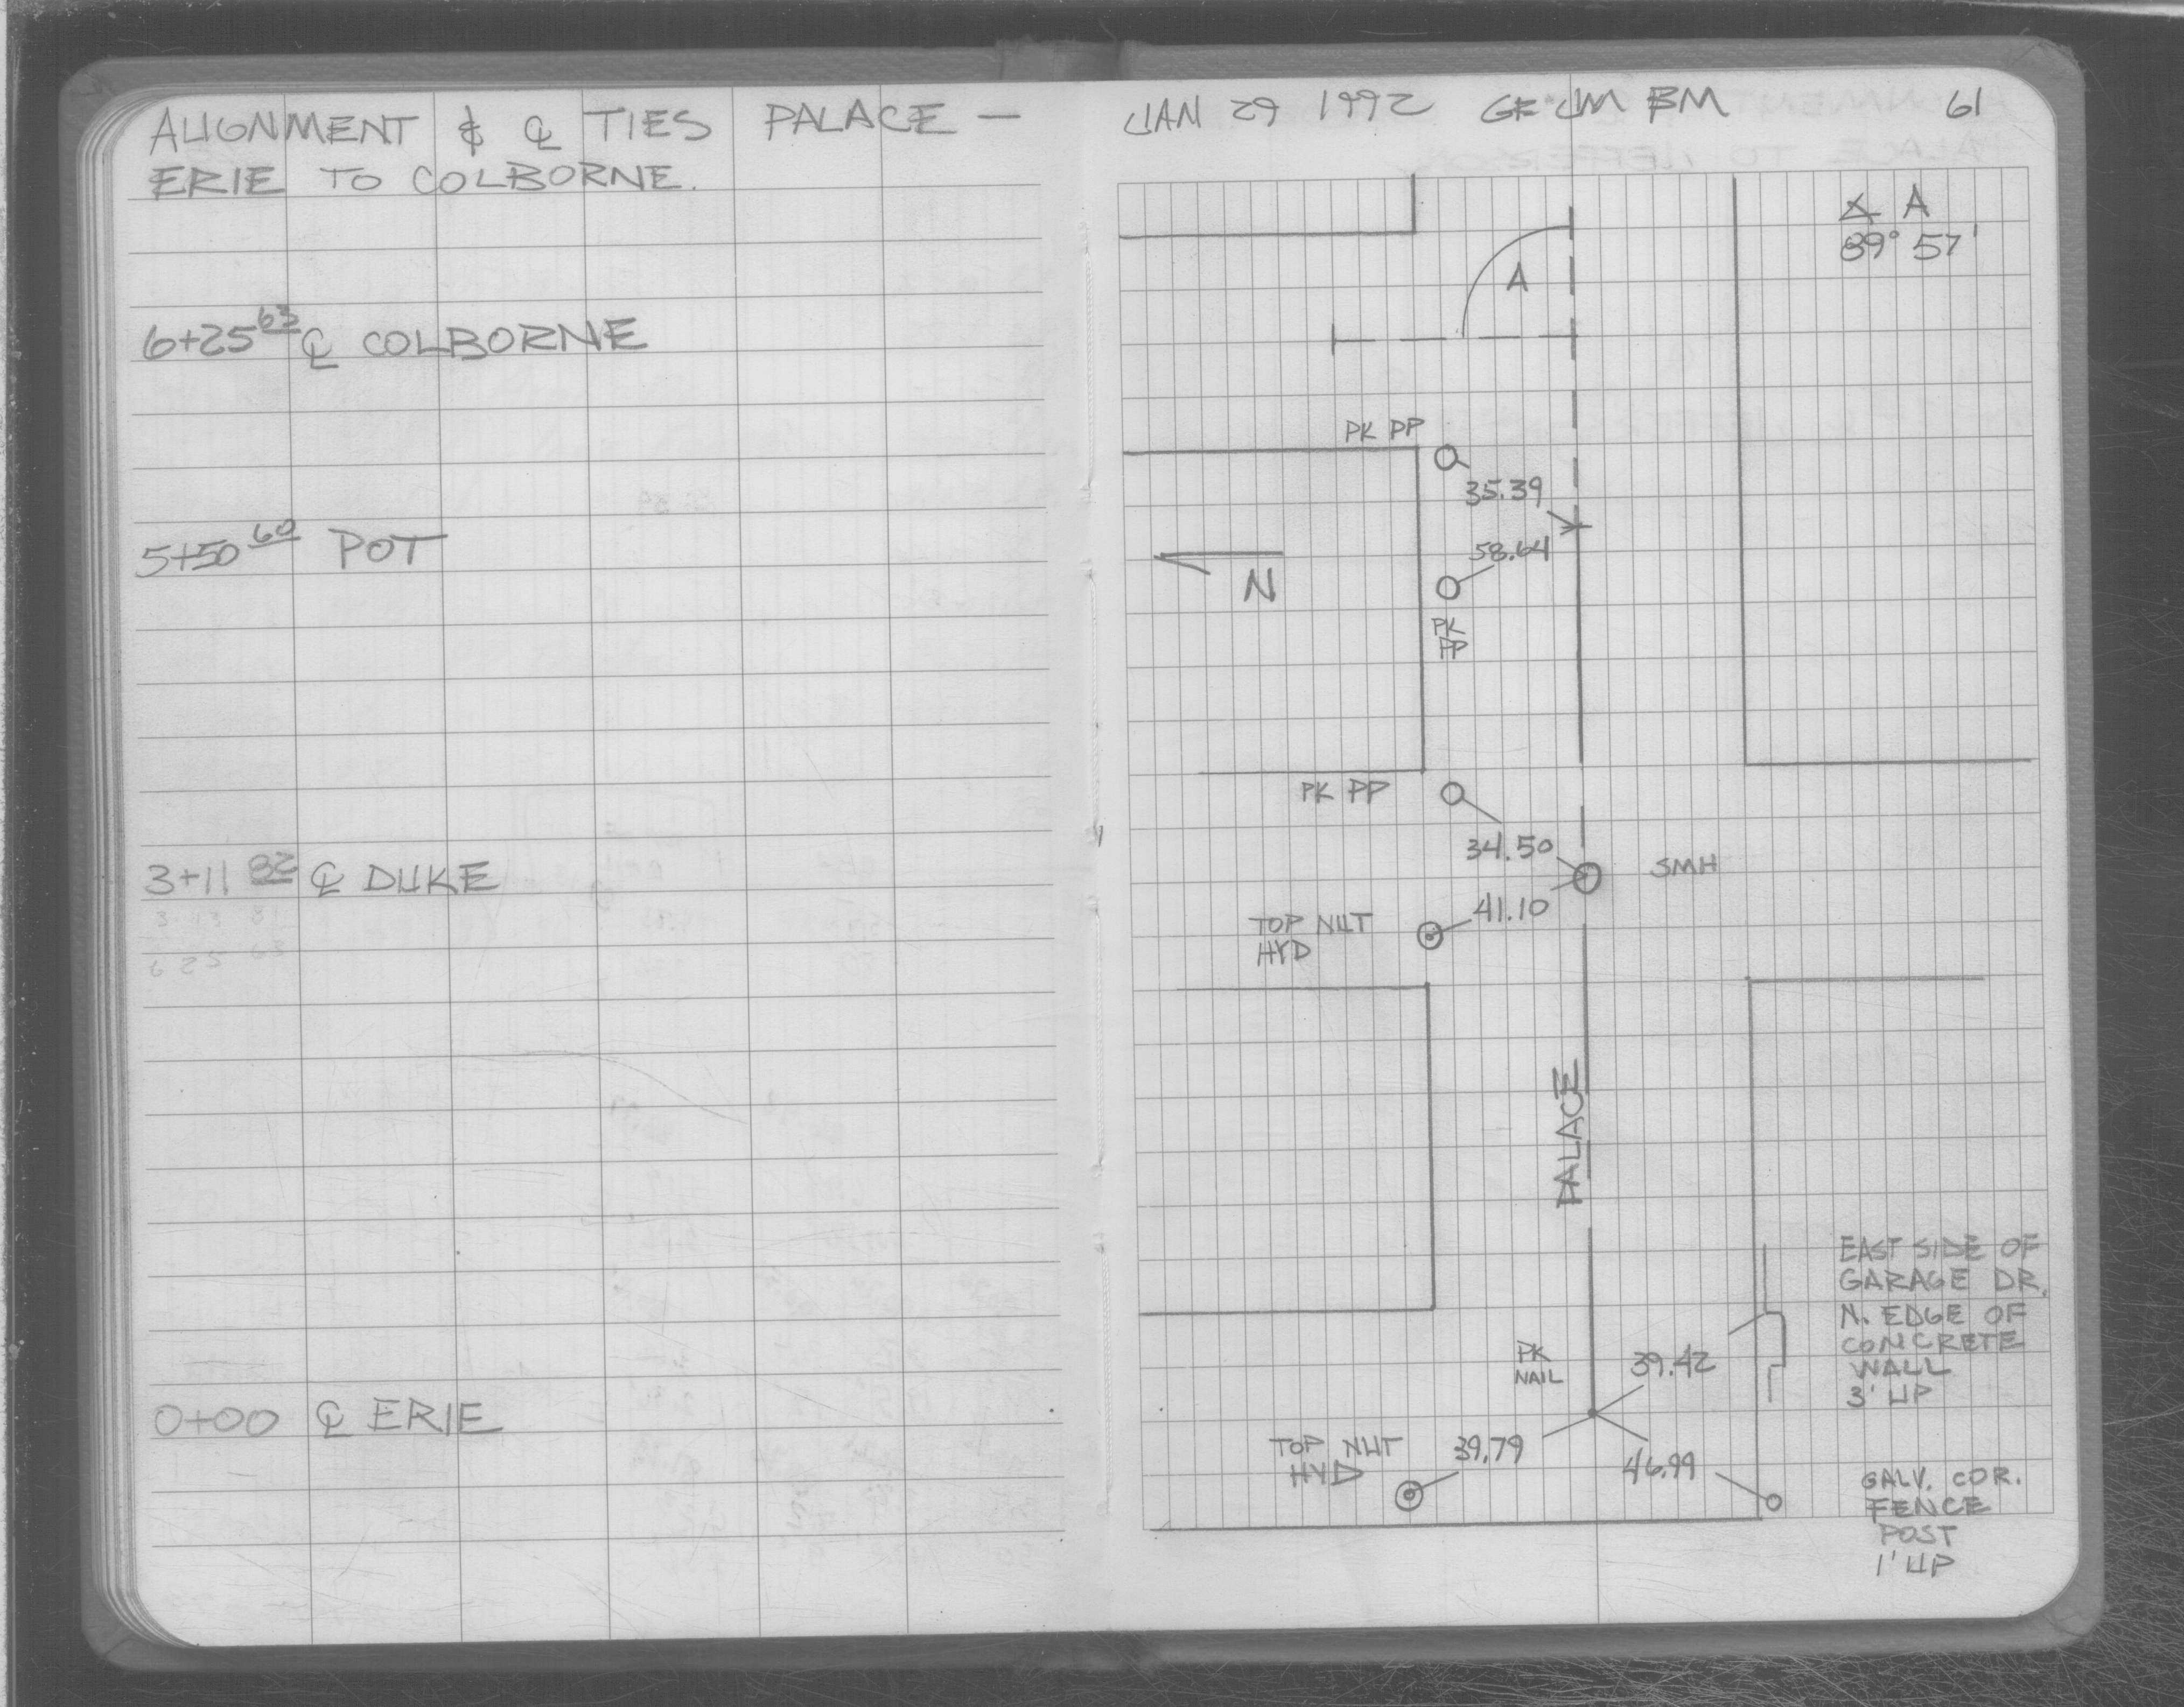 ALIGNMENT & ℄ TIES PALACE —
ERIE TO COLBORNE.
6+25 63 ℄ COLBORNE
5+50 60 POT
3+11 82 ℄ DUKE
3 13 81
6 25 63
0+00 ℄ ERIE
JAN 29 1992 GF JM BM 61
∡ A
89° 57'
A
PK PP
35.39
58.64
N
PK
PP
PK PP
34.50
SMH
41.10
TOP NUT
HYD
PALACE
EAST SIDE OF
GARAGE DR.
N. EDGE OF
CONCRETE
WALL
3' UP
PK
NAIL
39.42
TOP NUT
HYD
39.79
46.99
GALV. COR.
FENCE
POST
1' UP